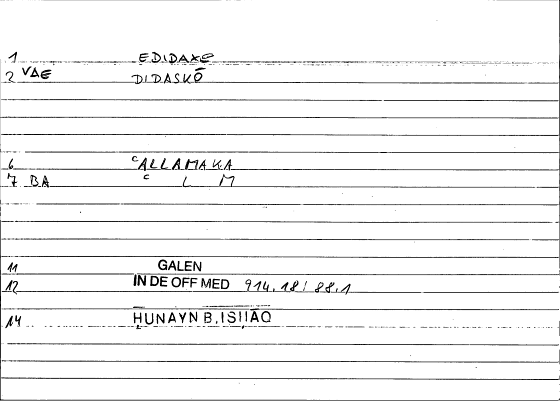 1 EDIDAXE
2 VAE DIDASKŌ
6 ᶜALLAMAKA
7 BA ᶜ L M
11 GALEN
12 IN DE OFF MED 914.18/88.1
14 HUNAYN B. ISḤĀQ